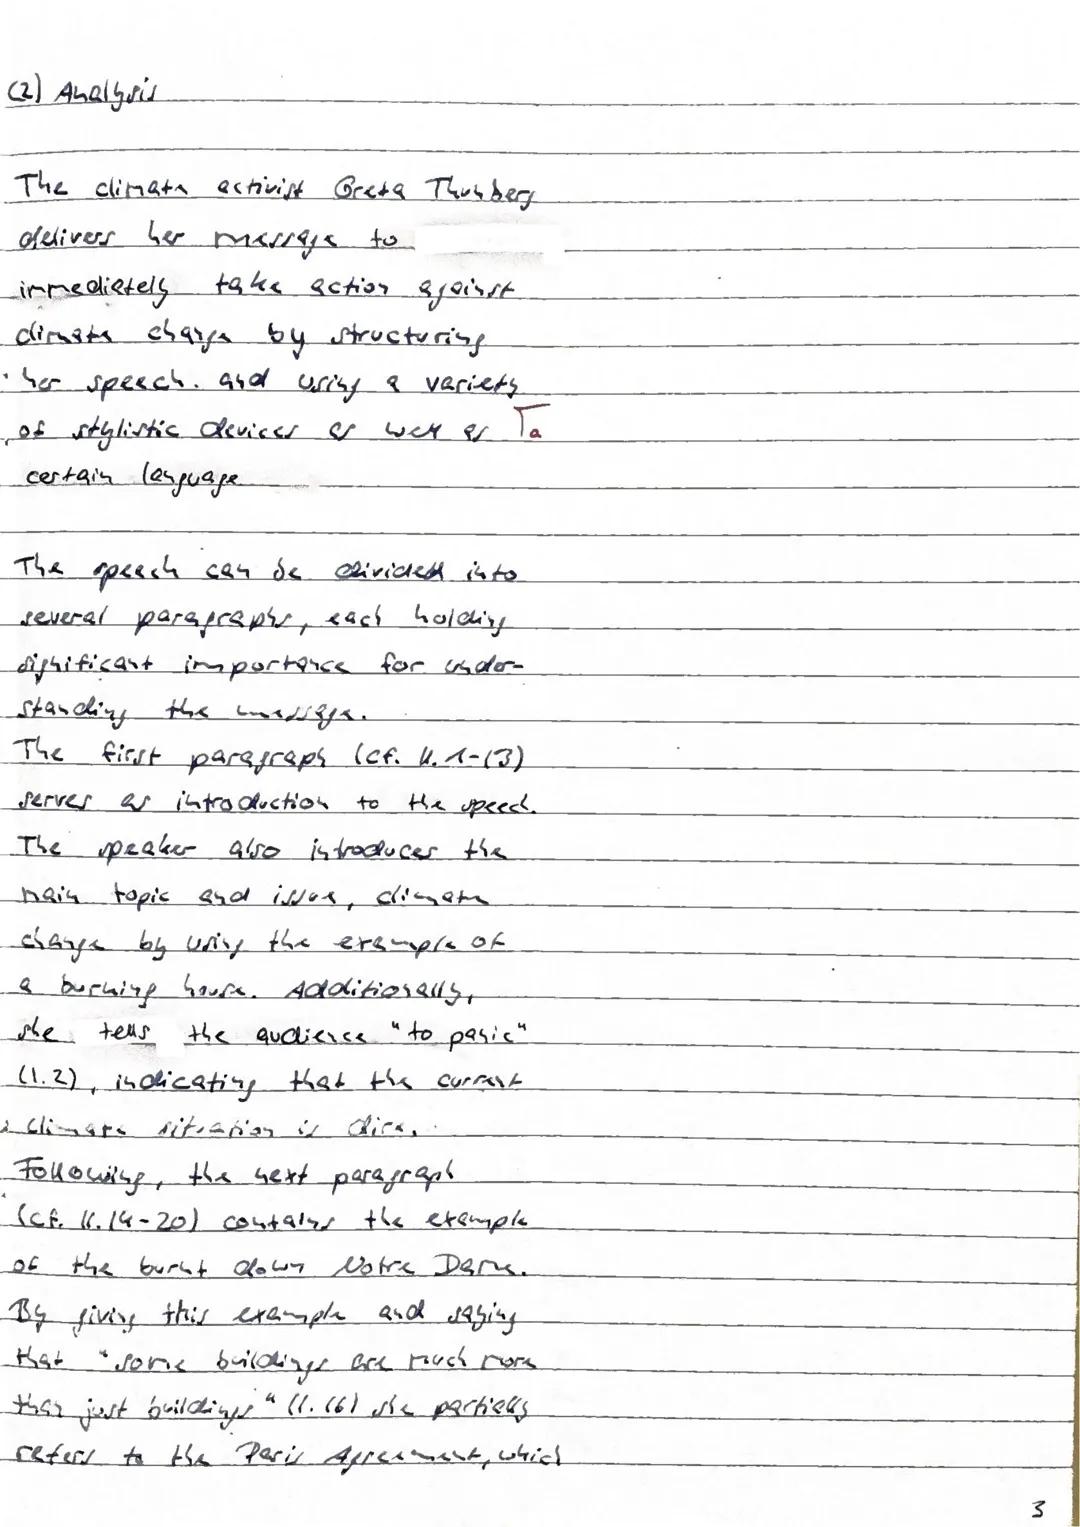 (2) Analysis
The climate activist Greta Thunberg
delivers her message to
immediately take action against
climate change by structuring
her speech. and using a variety
of stylistic devices as well as Γa
certain language
The speech can be divided into
several paragraphs, each holding
significant importance for under-
standing the message.
The first paragraph (cf. ll. 1-13)
serves as introduction to the speech.
The speaker also introduces the
main topic and issue, climate
change by using the example of
a burning house. Additionally,
she tells the audience "to panic"
(l. 2), indicating that the current
climate situation is dire.
Following, the next paragraph
(cf. ll. 14-20) contains the example
of the burnt down Notre Dame.
By giving this example and saying
that "some buildings are much more
than just buildings" (l. 16) she partially
refers to the Paris Agreement, which
3